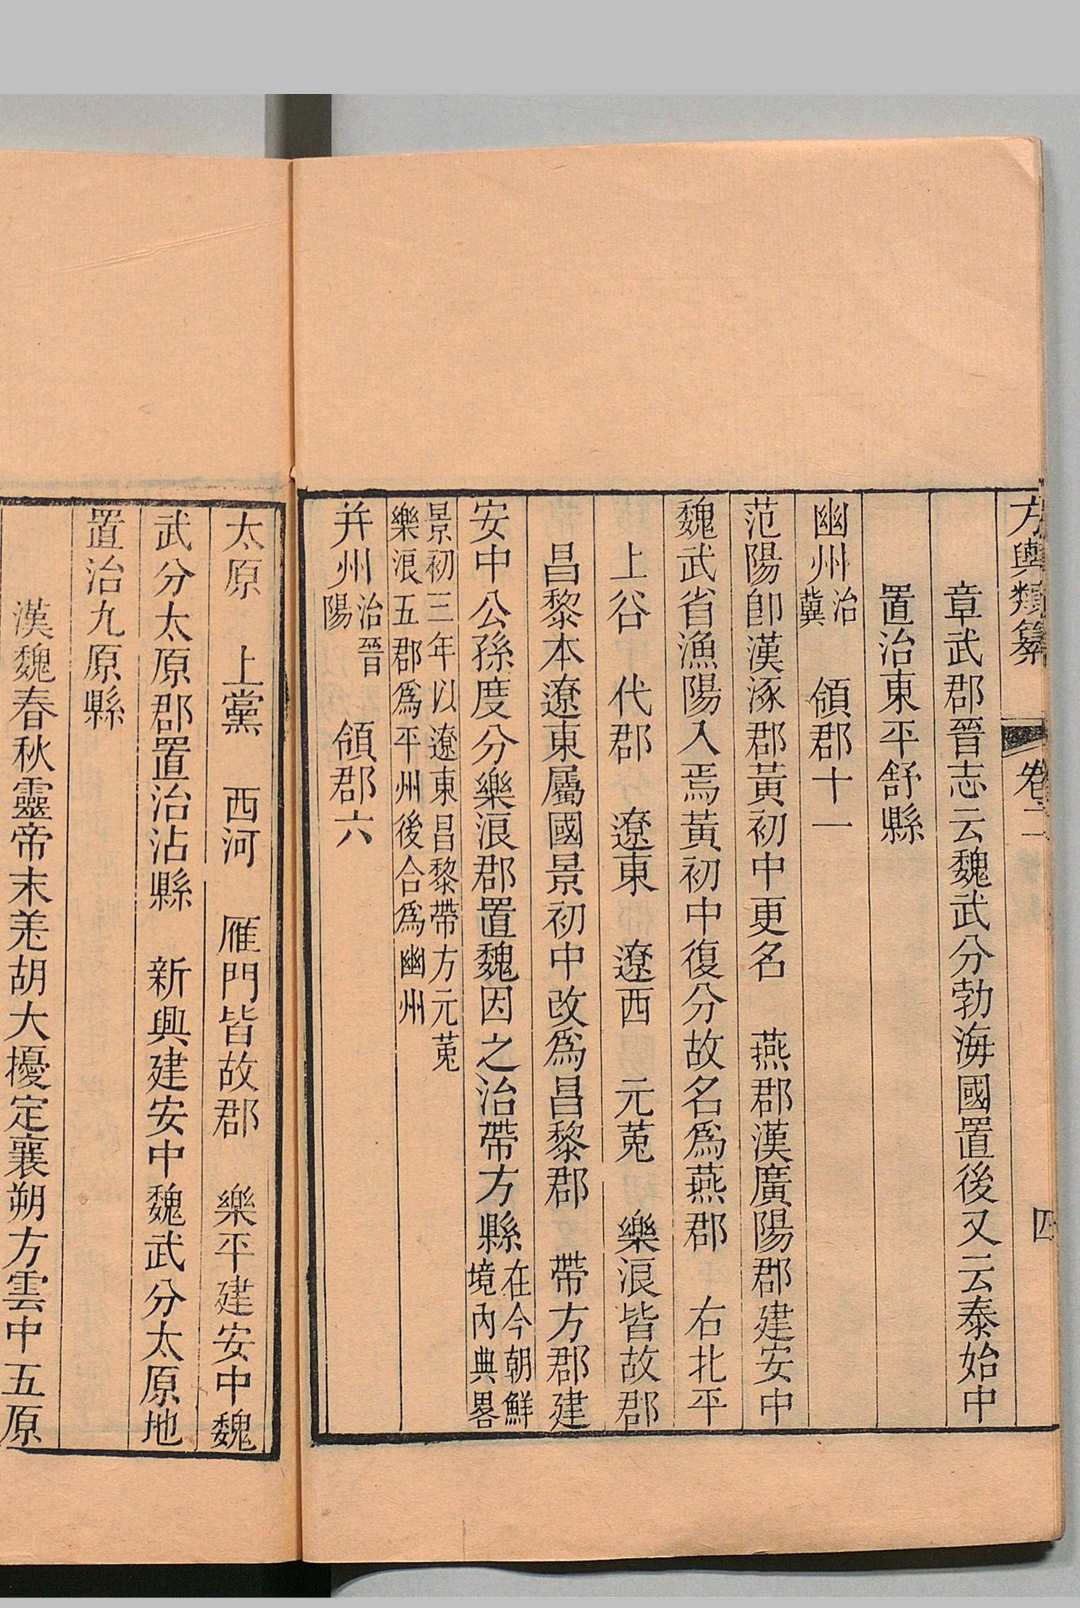 方輿類纂 卷二 四
章武郡晉志云魏武分勃海國置後又云泰始中
置治東平舒縣
幽州治薊 領郡十一
范陽卽漢涿郡黃初中更名 燕郡漢廣陽郡建安中
魏武省漁陽入焉黃初中復分故名爲燕郡 右北平
上谷 代郡 遼東 遼西 元菟 樂浪皆故郡
昌黎本遼東屬國景初中改爲昌黎郡 帶方郡建
安中公孫度分樂浪郡置魏因之治帶方縣在今朝鮮境內典畧
景初三年以遼東昌黎帶方元菟
樂浪五郡爲平州後合爲幽州
并州治晉陽 領郡六
太原 上黨 西河 雁門皆故郡 樂平建安中魏
武分太原郡置治沾縣 新興建安中魏武分太原地
置治九原縣
漢魏春秋靈帝末羌胡大擾定襄朔方雲中五原